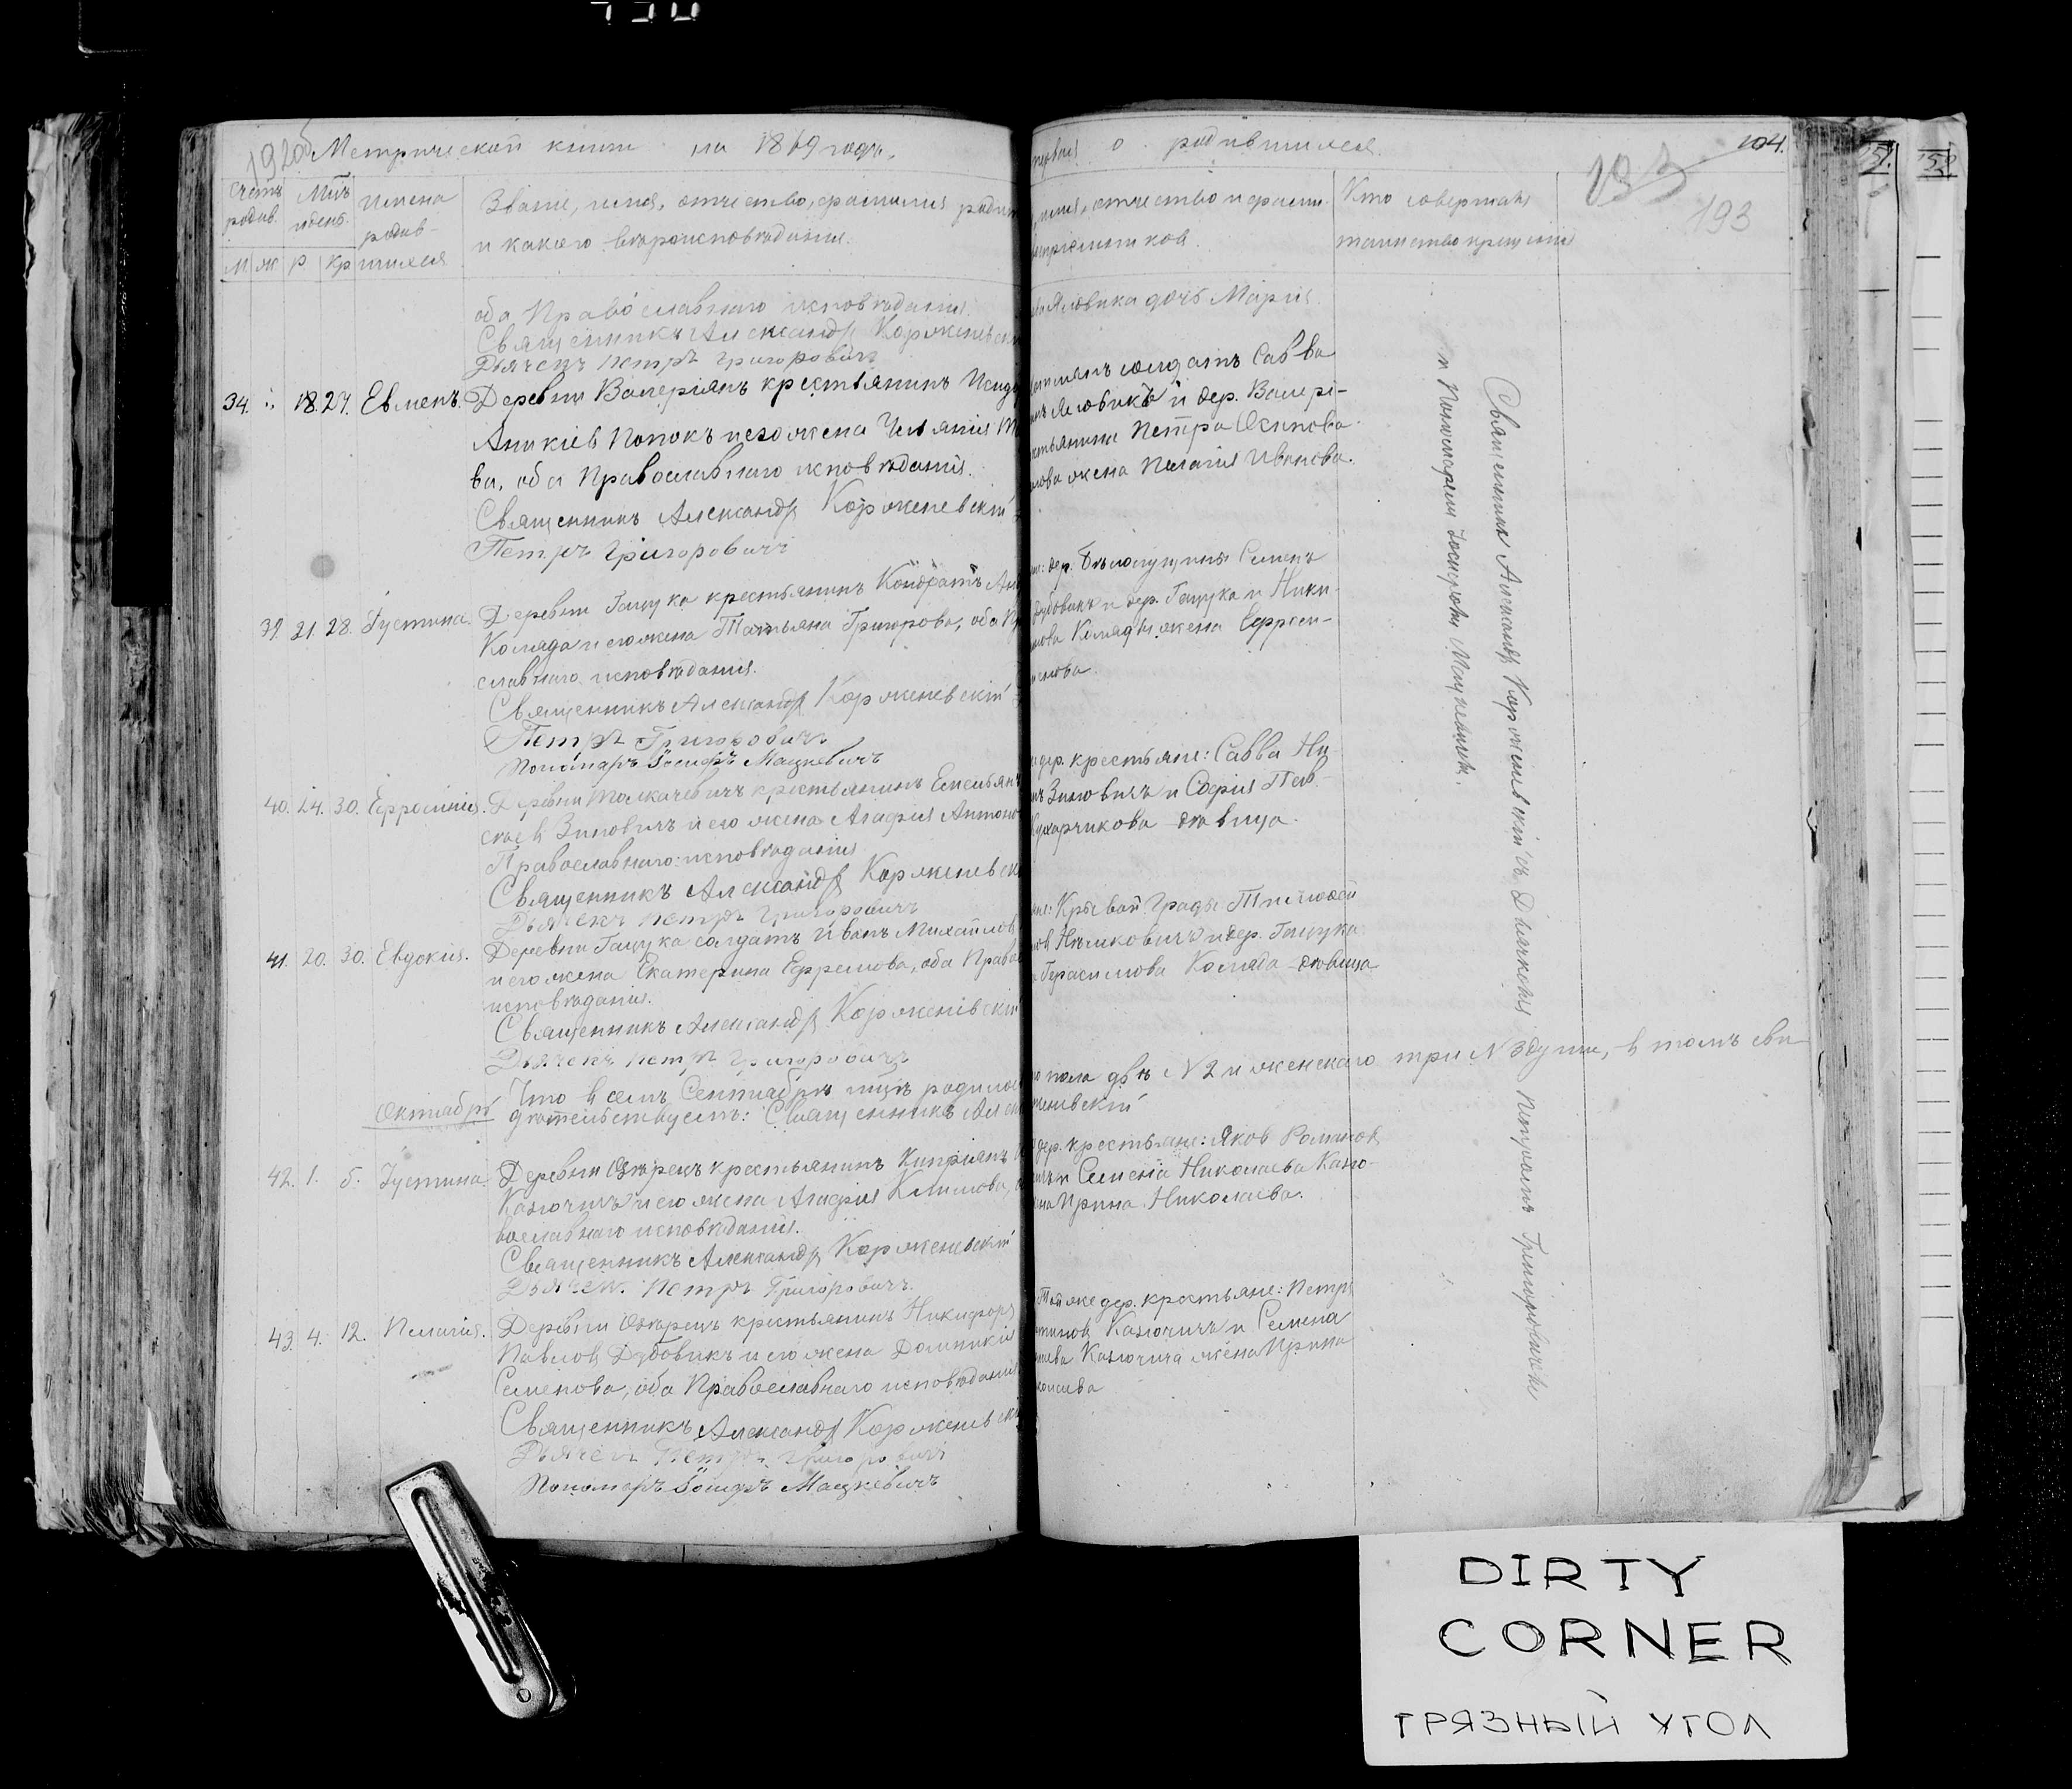 192об Метрической книги на 1869 годъ,
Счетъ родив. Мцъ и день. Имена родив-шихся Званіе, имя, отчество, фамилія родит
и какого вѣроисповѣданія.
М ж р кр
оба Православнаго исповѣданія.
Священникъ Александръ Корженевскі
Дьячекъ Петръ Григоровичъ
34. 18. 27. Евменъ. Деревни Валеріянъ крестьянинъ
Аникіев Попокъ и его жена
ва, оба Православнаго исповѣданія.
Священникъ Александръ Корженевскій
Петръ Григоровичъ
39. 21. 28. Іустина. Деревни Гацука крестьянинъ Кондратъ
Коляда и его жена Татьяна Григорова, оба
славнаго исповѣданія.
Священникъ Александръ Корженевскій
Петръ Григоровичъ
Пономарь Іосифъ Мацкевичъ
40. 24. 30. Ефросинія. Деревни Толкачевичъ крестьянинъ Емельянъ
Зиновичъ и его жена Агафія Антоно
Православнаго исповѣданія
Священникъ Александръ Корженевск
Дьячекъ Петръ Григоровичъ
41. 20. 30. Евдокія. Деревни Гацука солдатъ Иванъ Михайлов
и его жена Екатерина Ефремова, оба Право
исповѣданія.
Священникъ Александръ Корженевскій
Дьячекъ Петръ Григоровичъ
Что в семъ Сентябрѣ мцѣ родилос
Октябрь дѣтельствуемъ: Священникъ Алек
42. 1. 5. Іустина. Деревни Озѣрецъ крестьянинъ Кипріянъ
Казючичъ и его жена Агафія Климова,
вославнаго исповѣданія.
Священникъ Александръ Корженевскій
Дьячек. Петръ Григоровичъ.
43. 4. 12. Пелагія. Деревни Озѣрецъ крестьянинъ Никифоръ
Павловъ Дубовикъ и его жена Домникія
Семенова, оба Православнаго исповѣданія
Священникъ Александръ Корженевскі
Дьячекъ Петръ Григоровичъ
Пономарь Іосифъ Мацкевичъ
первая о родившихся. 104.
193
193
имя, отчество и фамил.
воспріемниковъ. Кто совершалъ
таинство крещенія
Яловика дочь Марія.
солдатъ Савва
Яловикъ и дер. Валері-
стьянина Петра Осипова
жена Пелагія Иванова.
дер. Бѣлолущины Семенъ
Дубовикъ и дер. Гацука и Ники-
Коляды жена Ефроси-
дер. крестьяне: Савва Ни-
Зиновичъ и Софія Пав-
Кухарчикова дѣвица.
Крывой Грады Тимофей
Нѣмковичъ и дер. Гацука
Герасимова Коляда дѣвица
пола двѣ N 2 и женскаго три N 3 души, в томъ сви-
женевскій
дер. крестьяне: Яков Романов
и Семена Николаева Казю-
на Ирина Николаева.
Той же дер. крестьяне: Петръ
Казючичъ и Семена
Казючича жена Ирина
колаева
Священникъ Александръ Корженевскій съ Дьячкомъ Петромъ Григоровичемъ
и Пономаремъ Іосифомъ Мацкевичемъ.
151. 152
DIRTY
CORNER
ГРЯЗНЫЙ УГОЛ